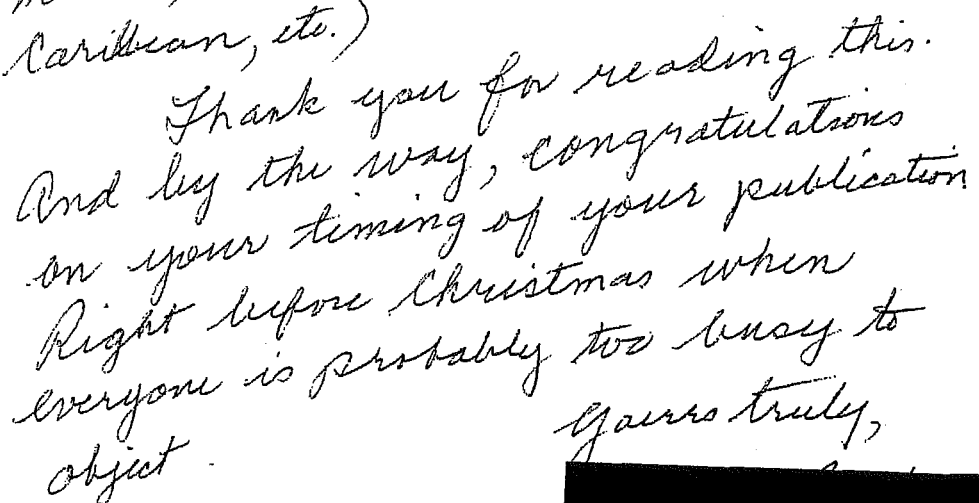 Caribbean, etc.)
Thank you for reading this.
And by the way, congratulations
on your timing of your publication
Right before Christmas when
everyone is probably too busy to
object.
Yours truly,